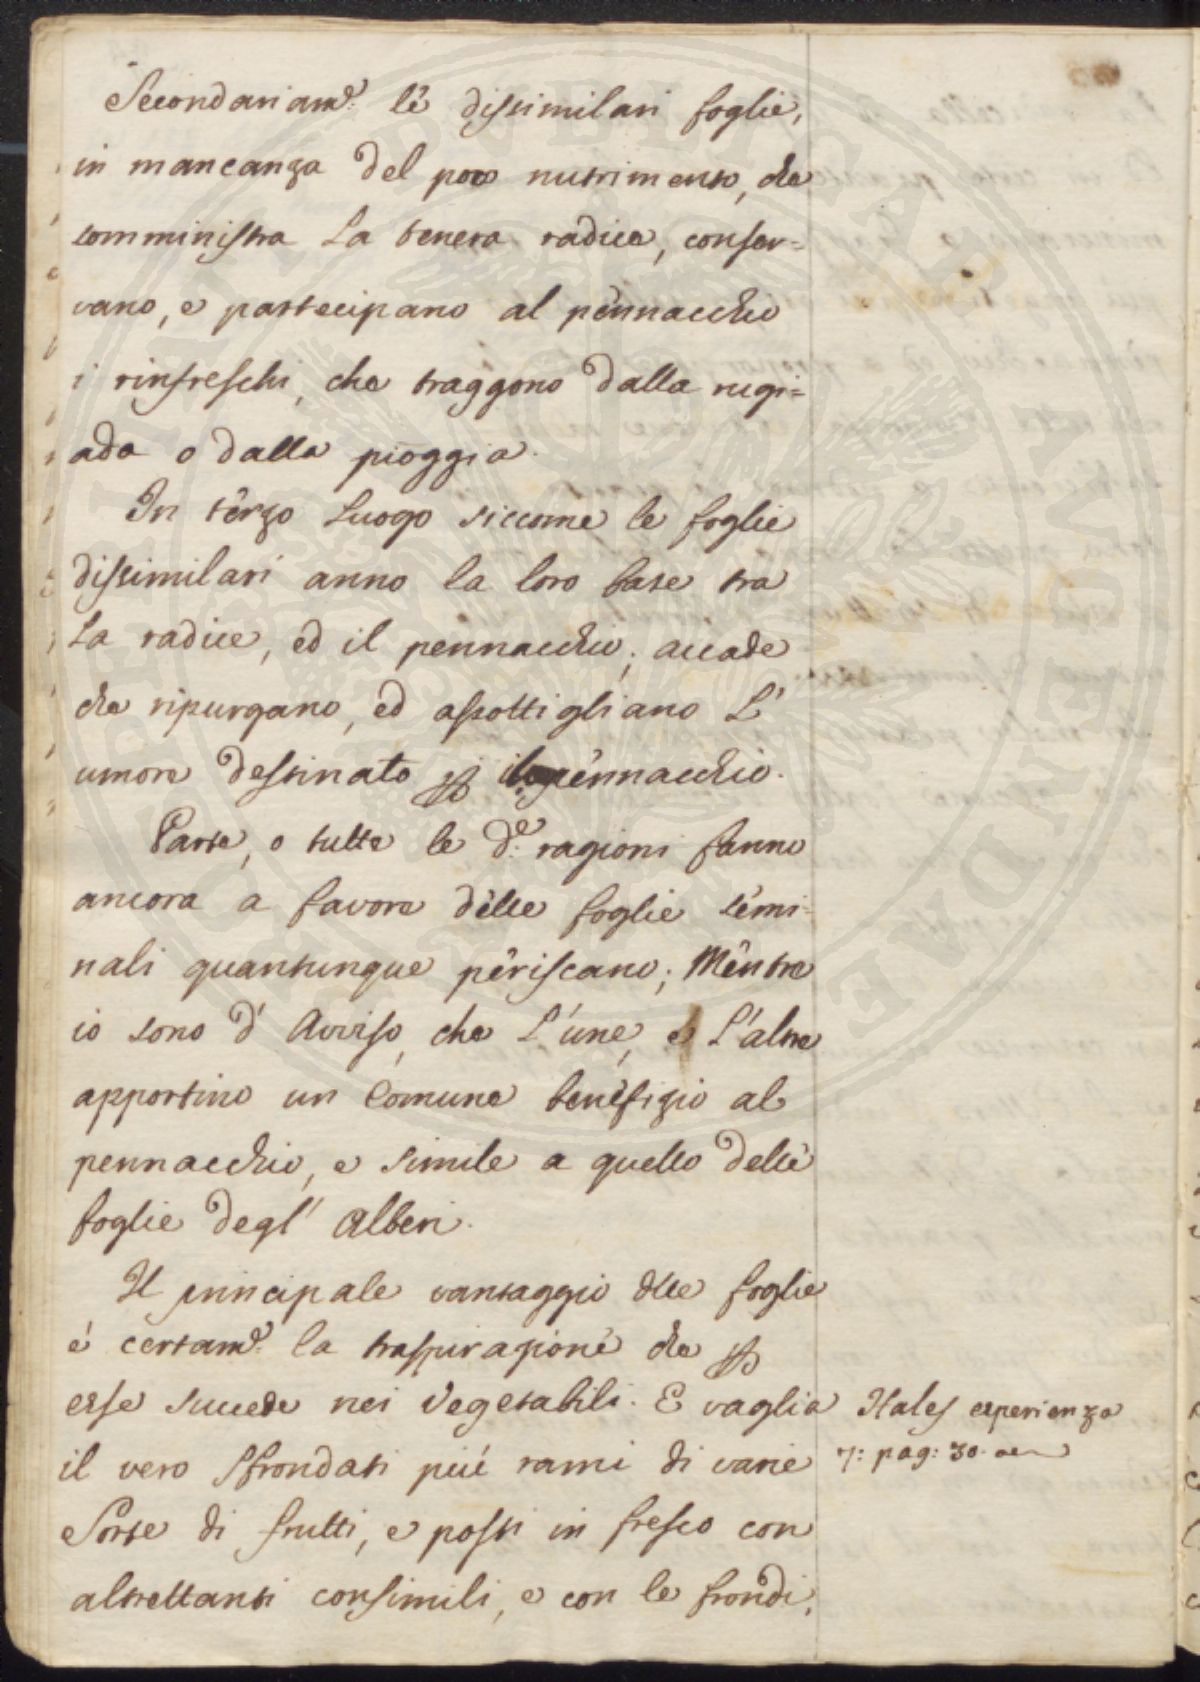 Secondariam.e le dissimilari foglie,
in mancanza del poco nutrimento, che
somministra la tenera radice, conser=
vano, e partecipano al pennacchio
i rinfreschi, che traggono dalla rugi=
ada o dalla pioggia.
In terzo luogo siccome le foglie
dissimilari anno la loro base tra
la radice, ed il pennacchio; accade
che ripurgano, ed assottigliano l'
umore destinato p il pennacchio.
Parte, o tutte le d.e ragioni fanno
ancora a favore delle foglie semi=
nali quantunque periscano; Mentre
io sono d'Avviso, che l'une, e l'altre
apportino un Comune benefizio al
pennacchio, e simile a quello delle
foglie degl'Alberi.
Il principale vantaggio dlle foglie
é certam.e la traspirazione che p
esse succede nei Vegetabili. E vaglia
il vero sfrondati piú rami di varie
Sorte di frutti, e posti in fresco con
altrettanti consimili, e con le frondi,
Hales esperienza
7: pag: 30.
SUPERIORITATI PUBLICAE AUGENDAE